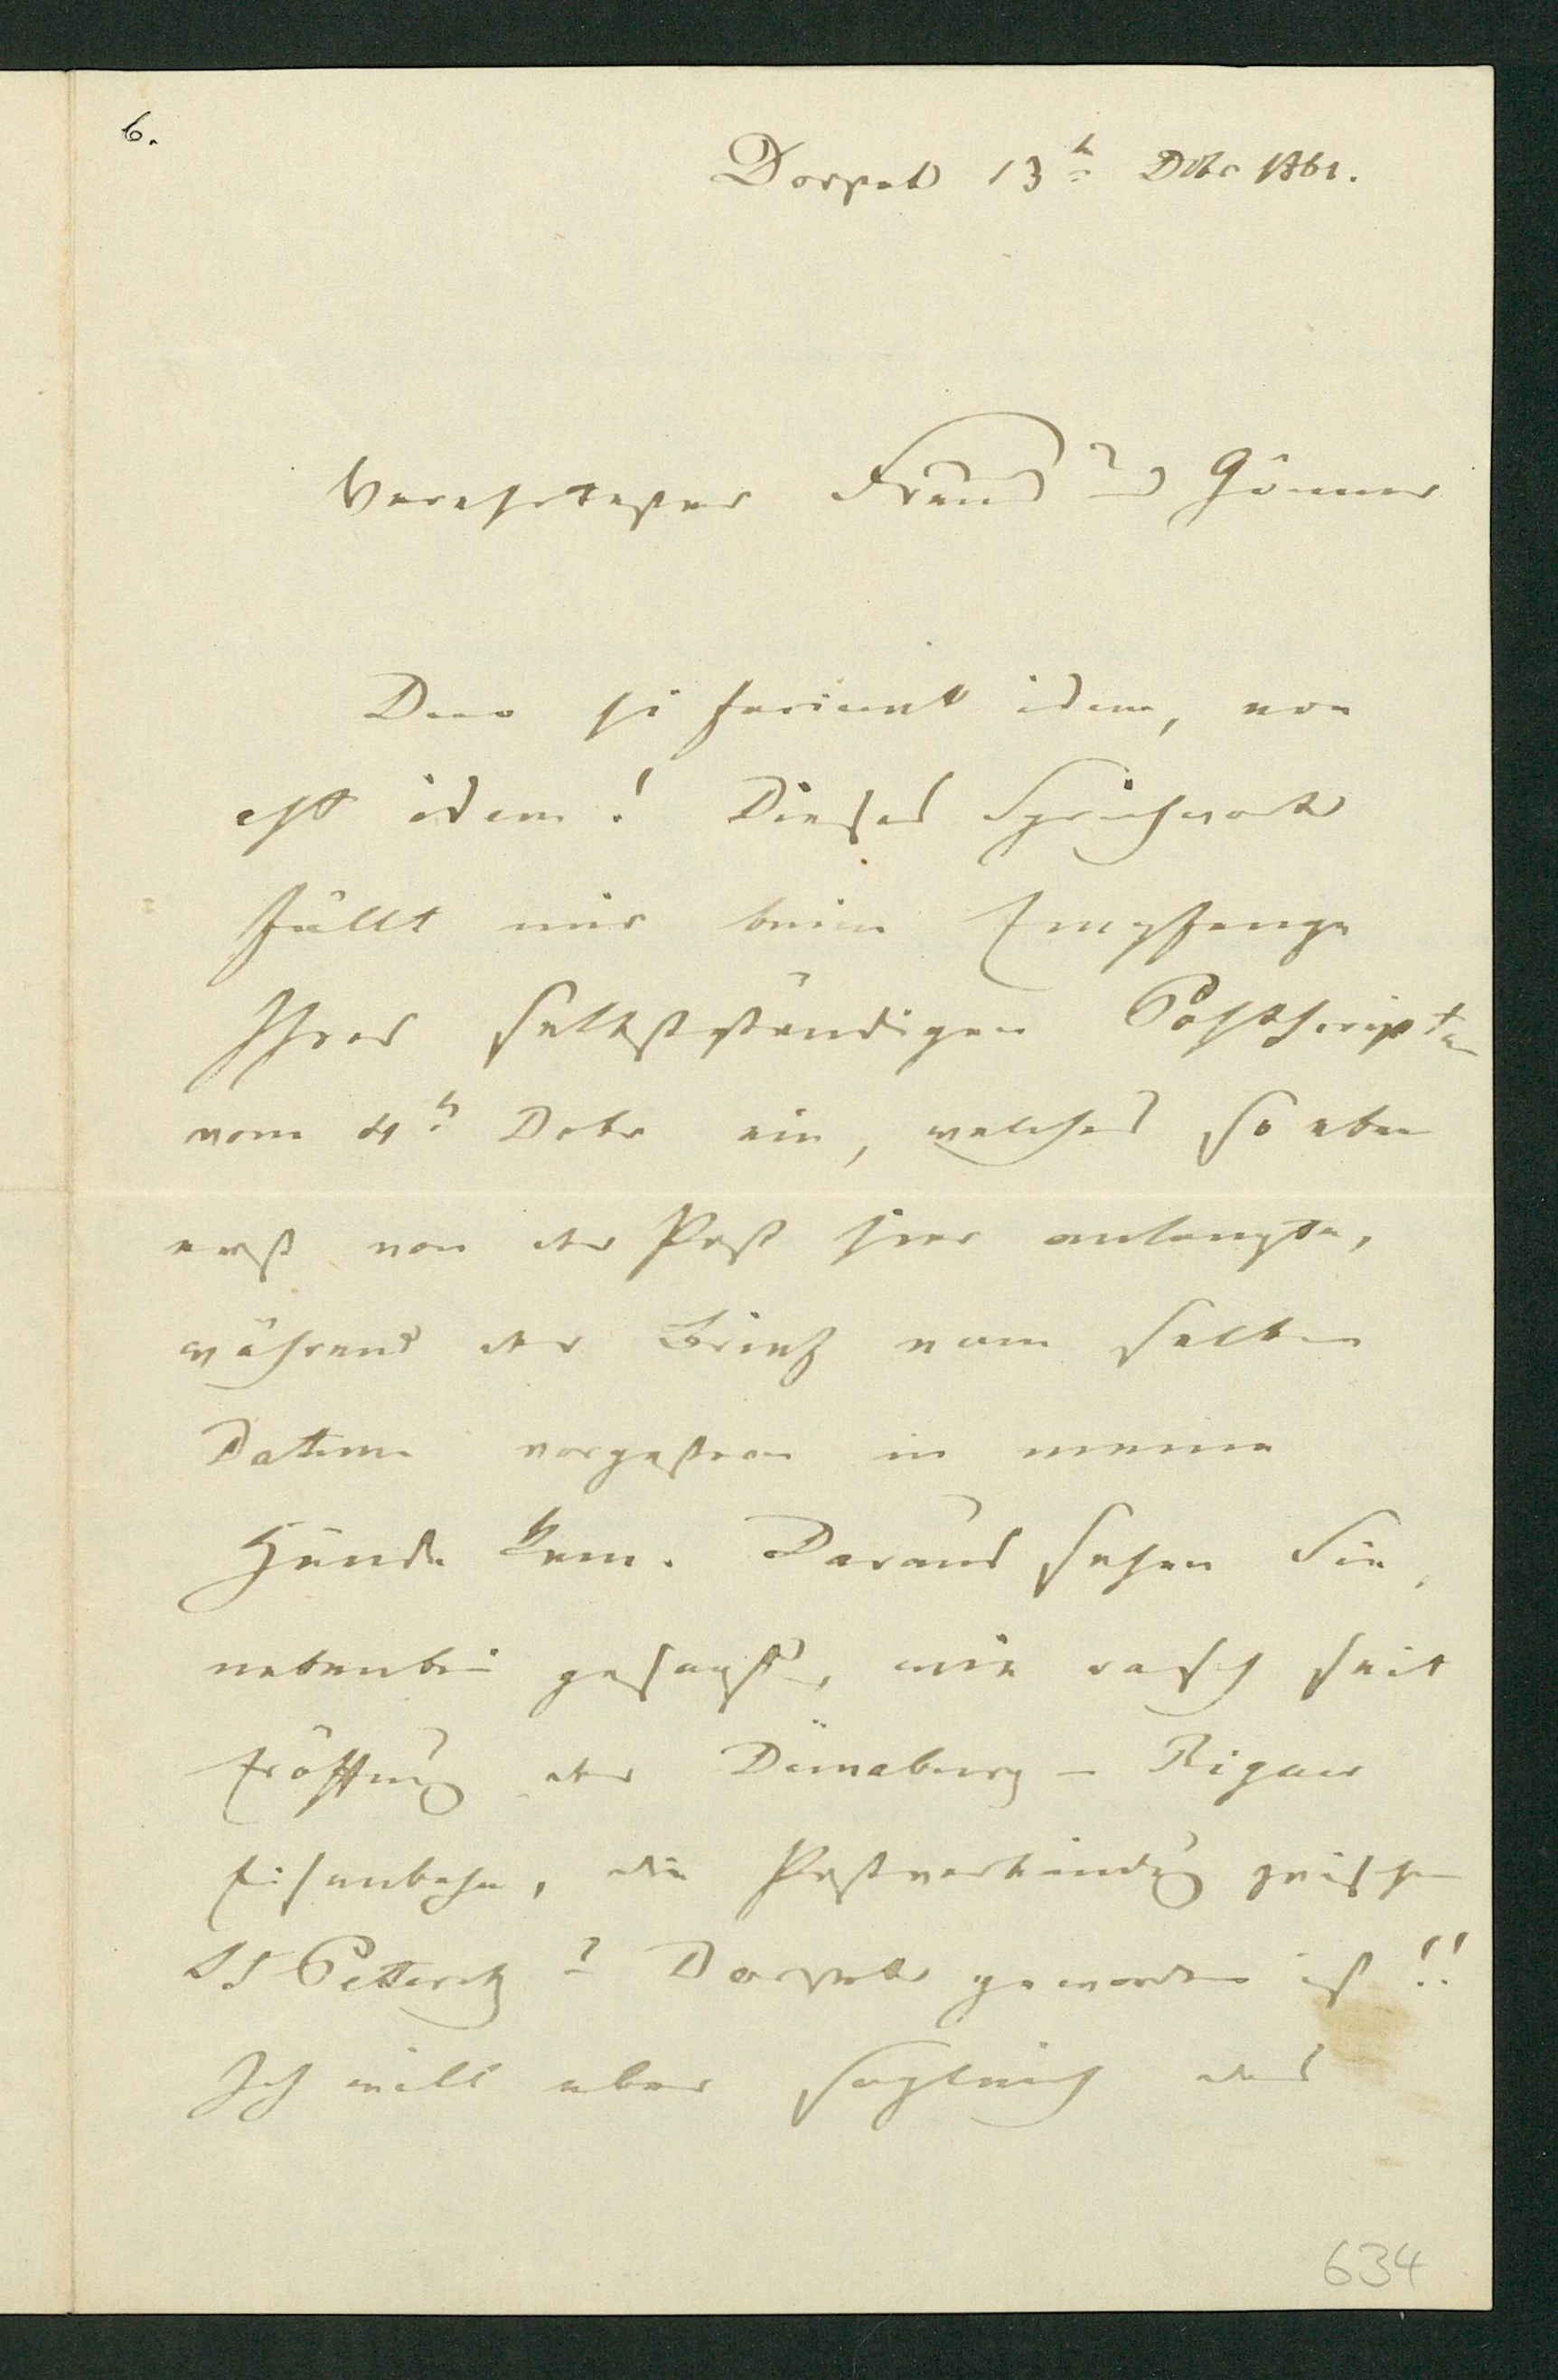 6.
Dorpat 13n Dbr 1861.
Verehrtester Freund und Gönner
Duo si faciunt idem, non
est idem! Dieses Sprichwort
fällt mir beim Empfange
Ihres selbstständigen Postscriptum
vom 4n Debr ein, welches so eben
erst von der Post hier anlangte,
während der Brief vom selben
Datum vorgestern in meine
Hände kam. Daraus sehen Sie,
nebenbei gesagt, wie rasch seit
Eröffnung der Dünaburg-Rigaer
Eisenbahn, die Postverbindung zwischen
St Petersb. u Dorpat geworden ist!!
Ich will aber sogleich das
634